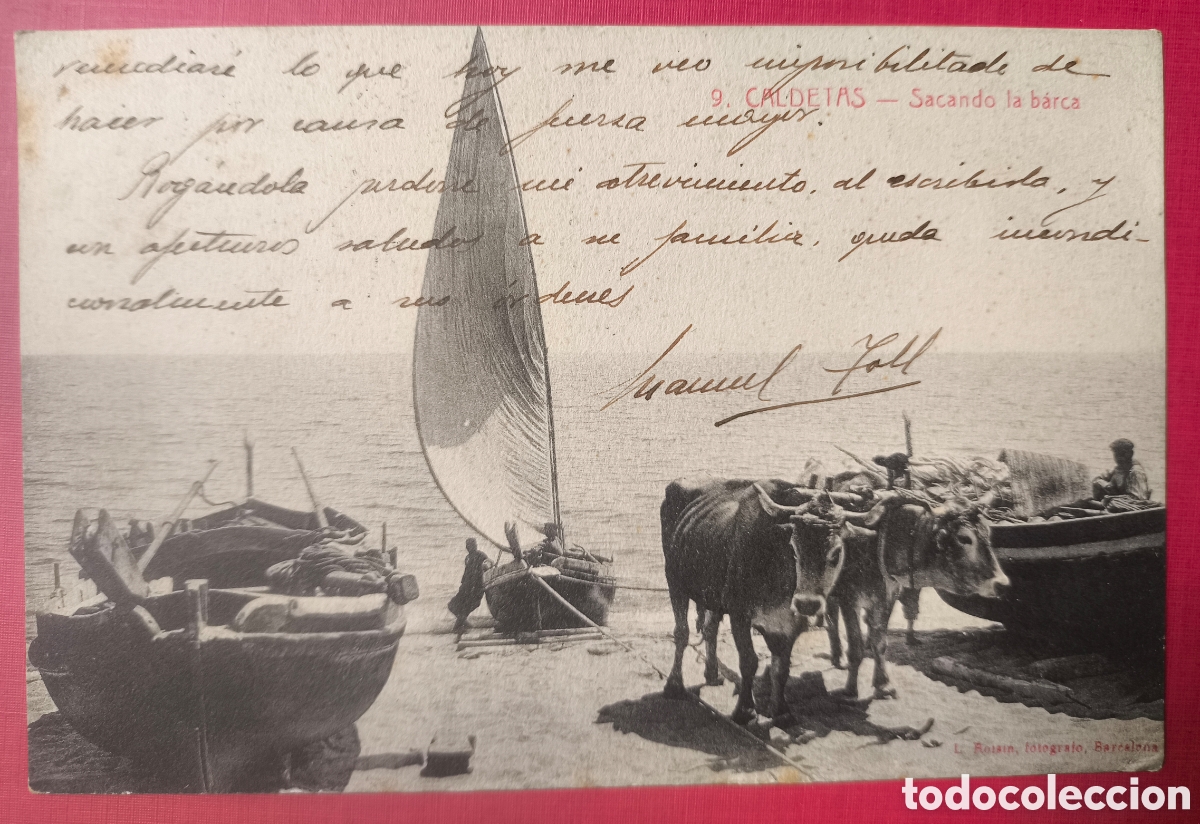 remediaré lo que hoy me veo imposibilitado de
9. CALDETAS — Sacando la bárca
hacer por causa de fuerza mayor.
Rogándola perdone mi atrevimiento, al escribirla, y
un afectuoso saludos a su familia, queda incondi-
cionalmente a sus órdenes
Manuel Toll
L. Roisin, fotografo, Barcelona
todocoleccion